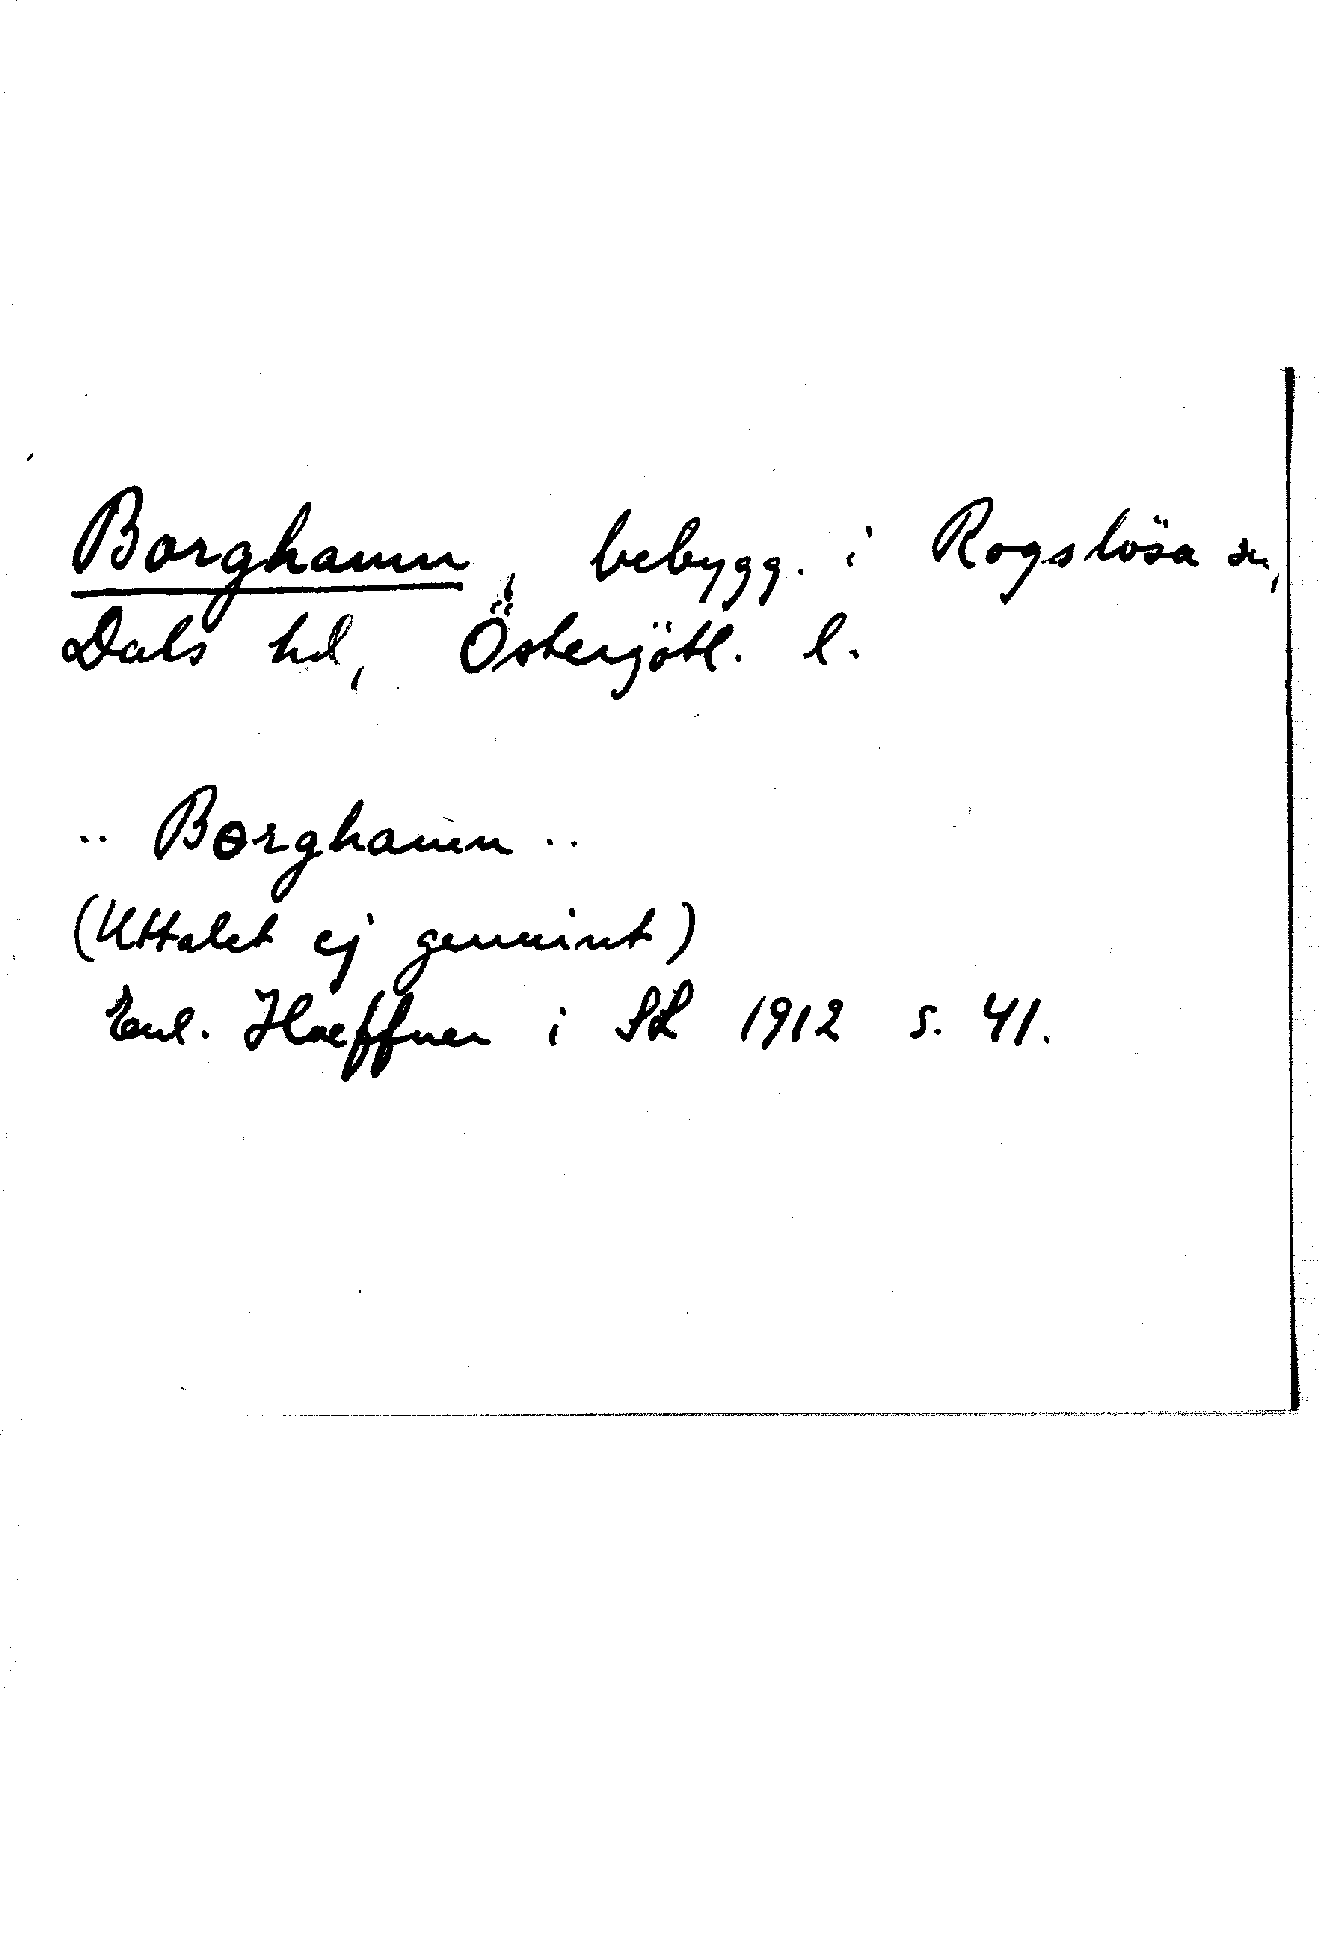 Borghamn, bebygg. i Rogslösa sn,
Dals hd, Östergötl. l.
.. Borghamn ..
(Uttalet ej genuint)
Enl. Haeffner i SL 1912 s. 41.